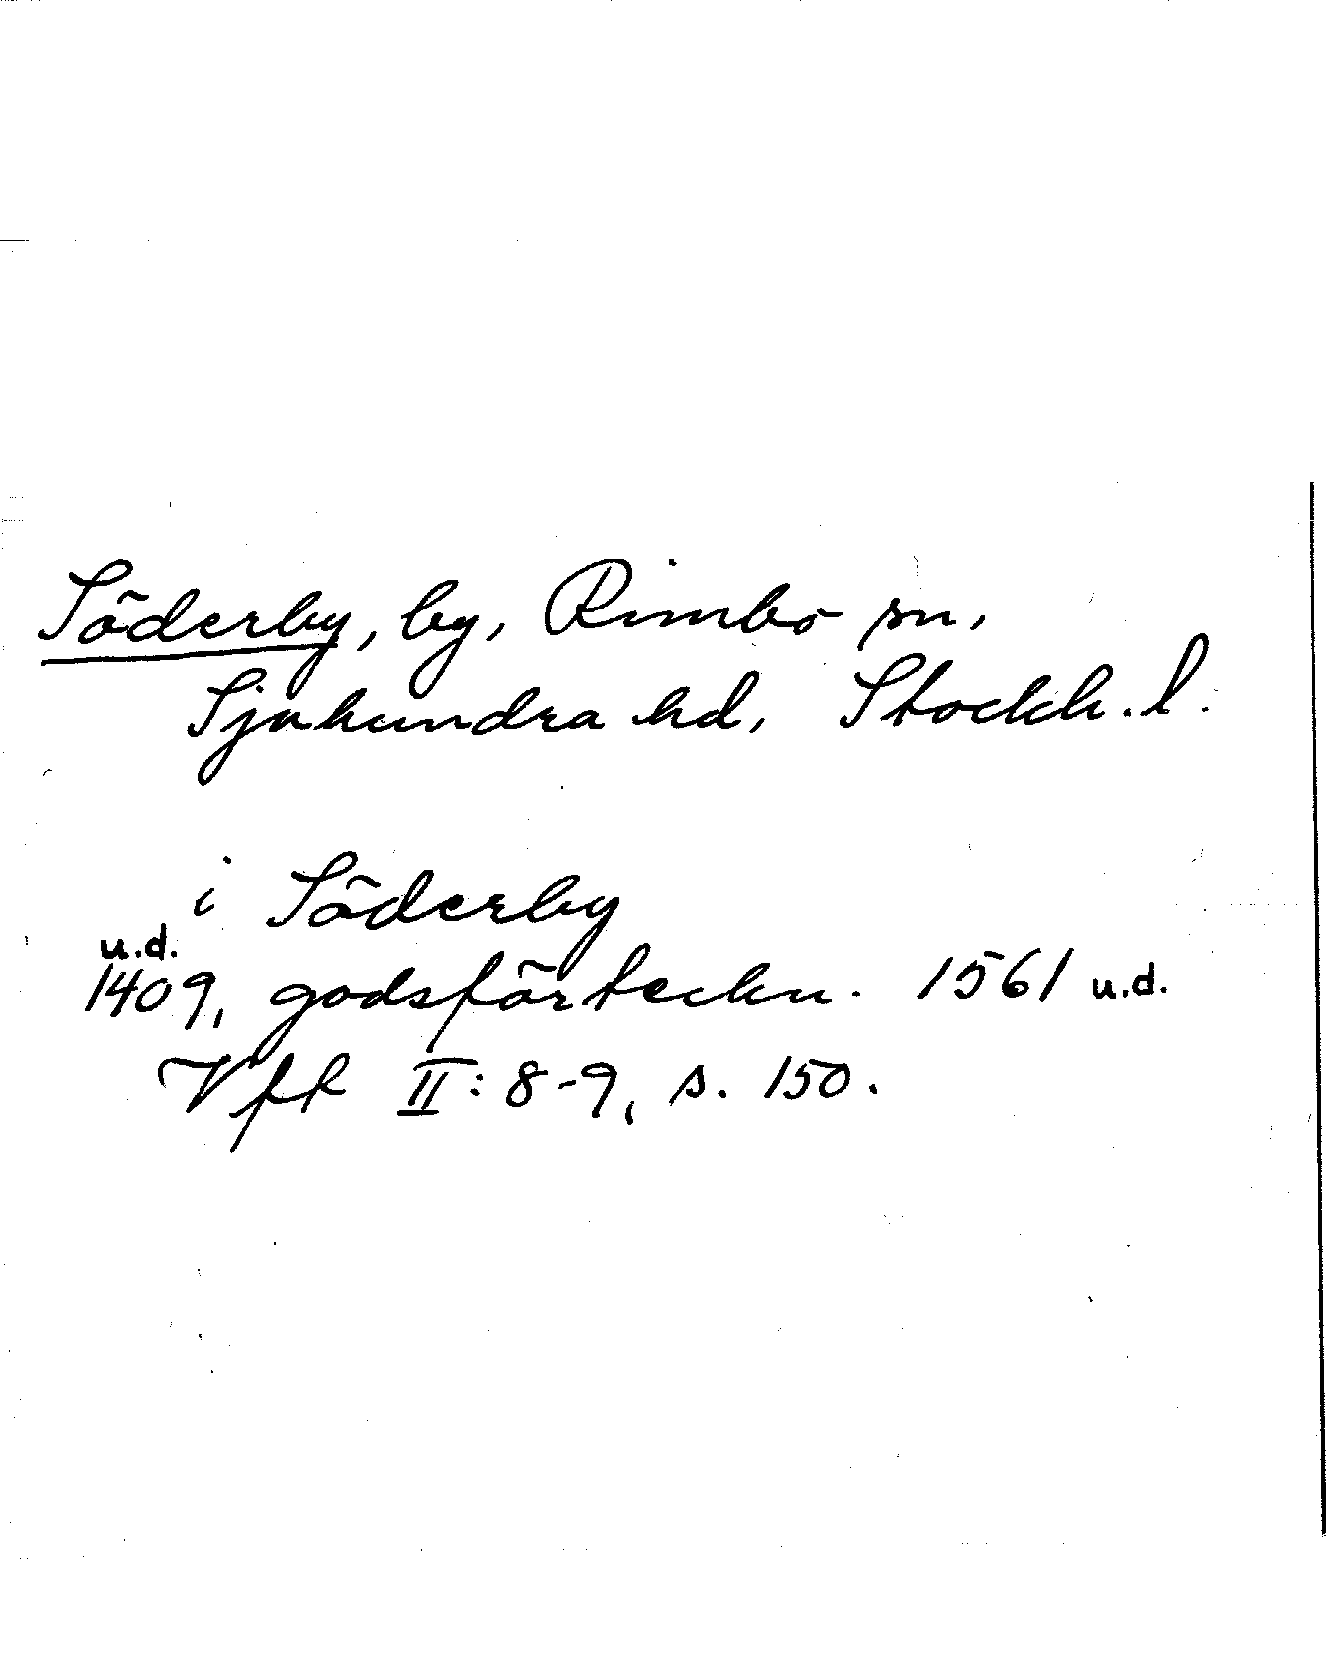 Söderby, by, Rimbo sn,
Sjuhundra hd, Stockh. l.
i Söderby
u.d.
1409, godsförteckn. 1561 u.d.
Vff II: 8-9, s. 150.